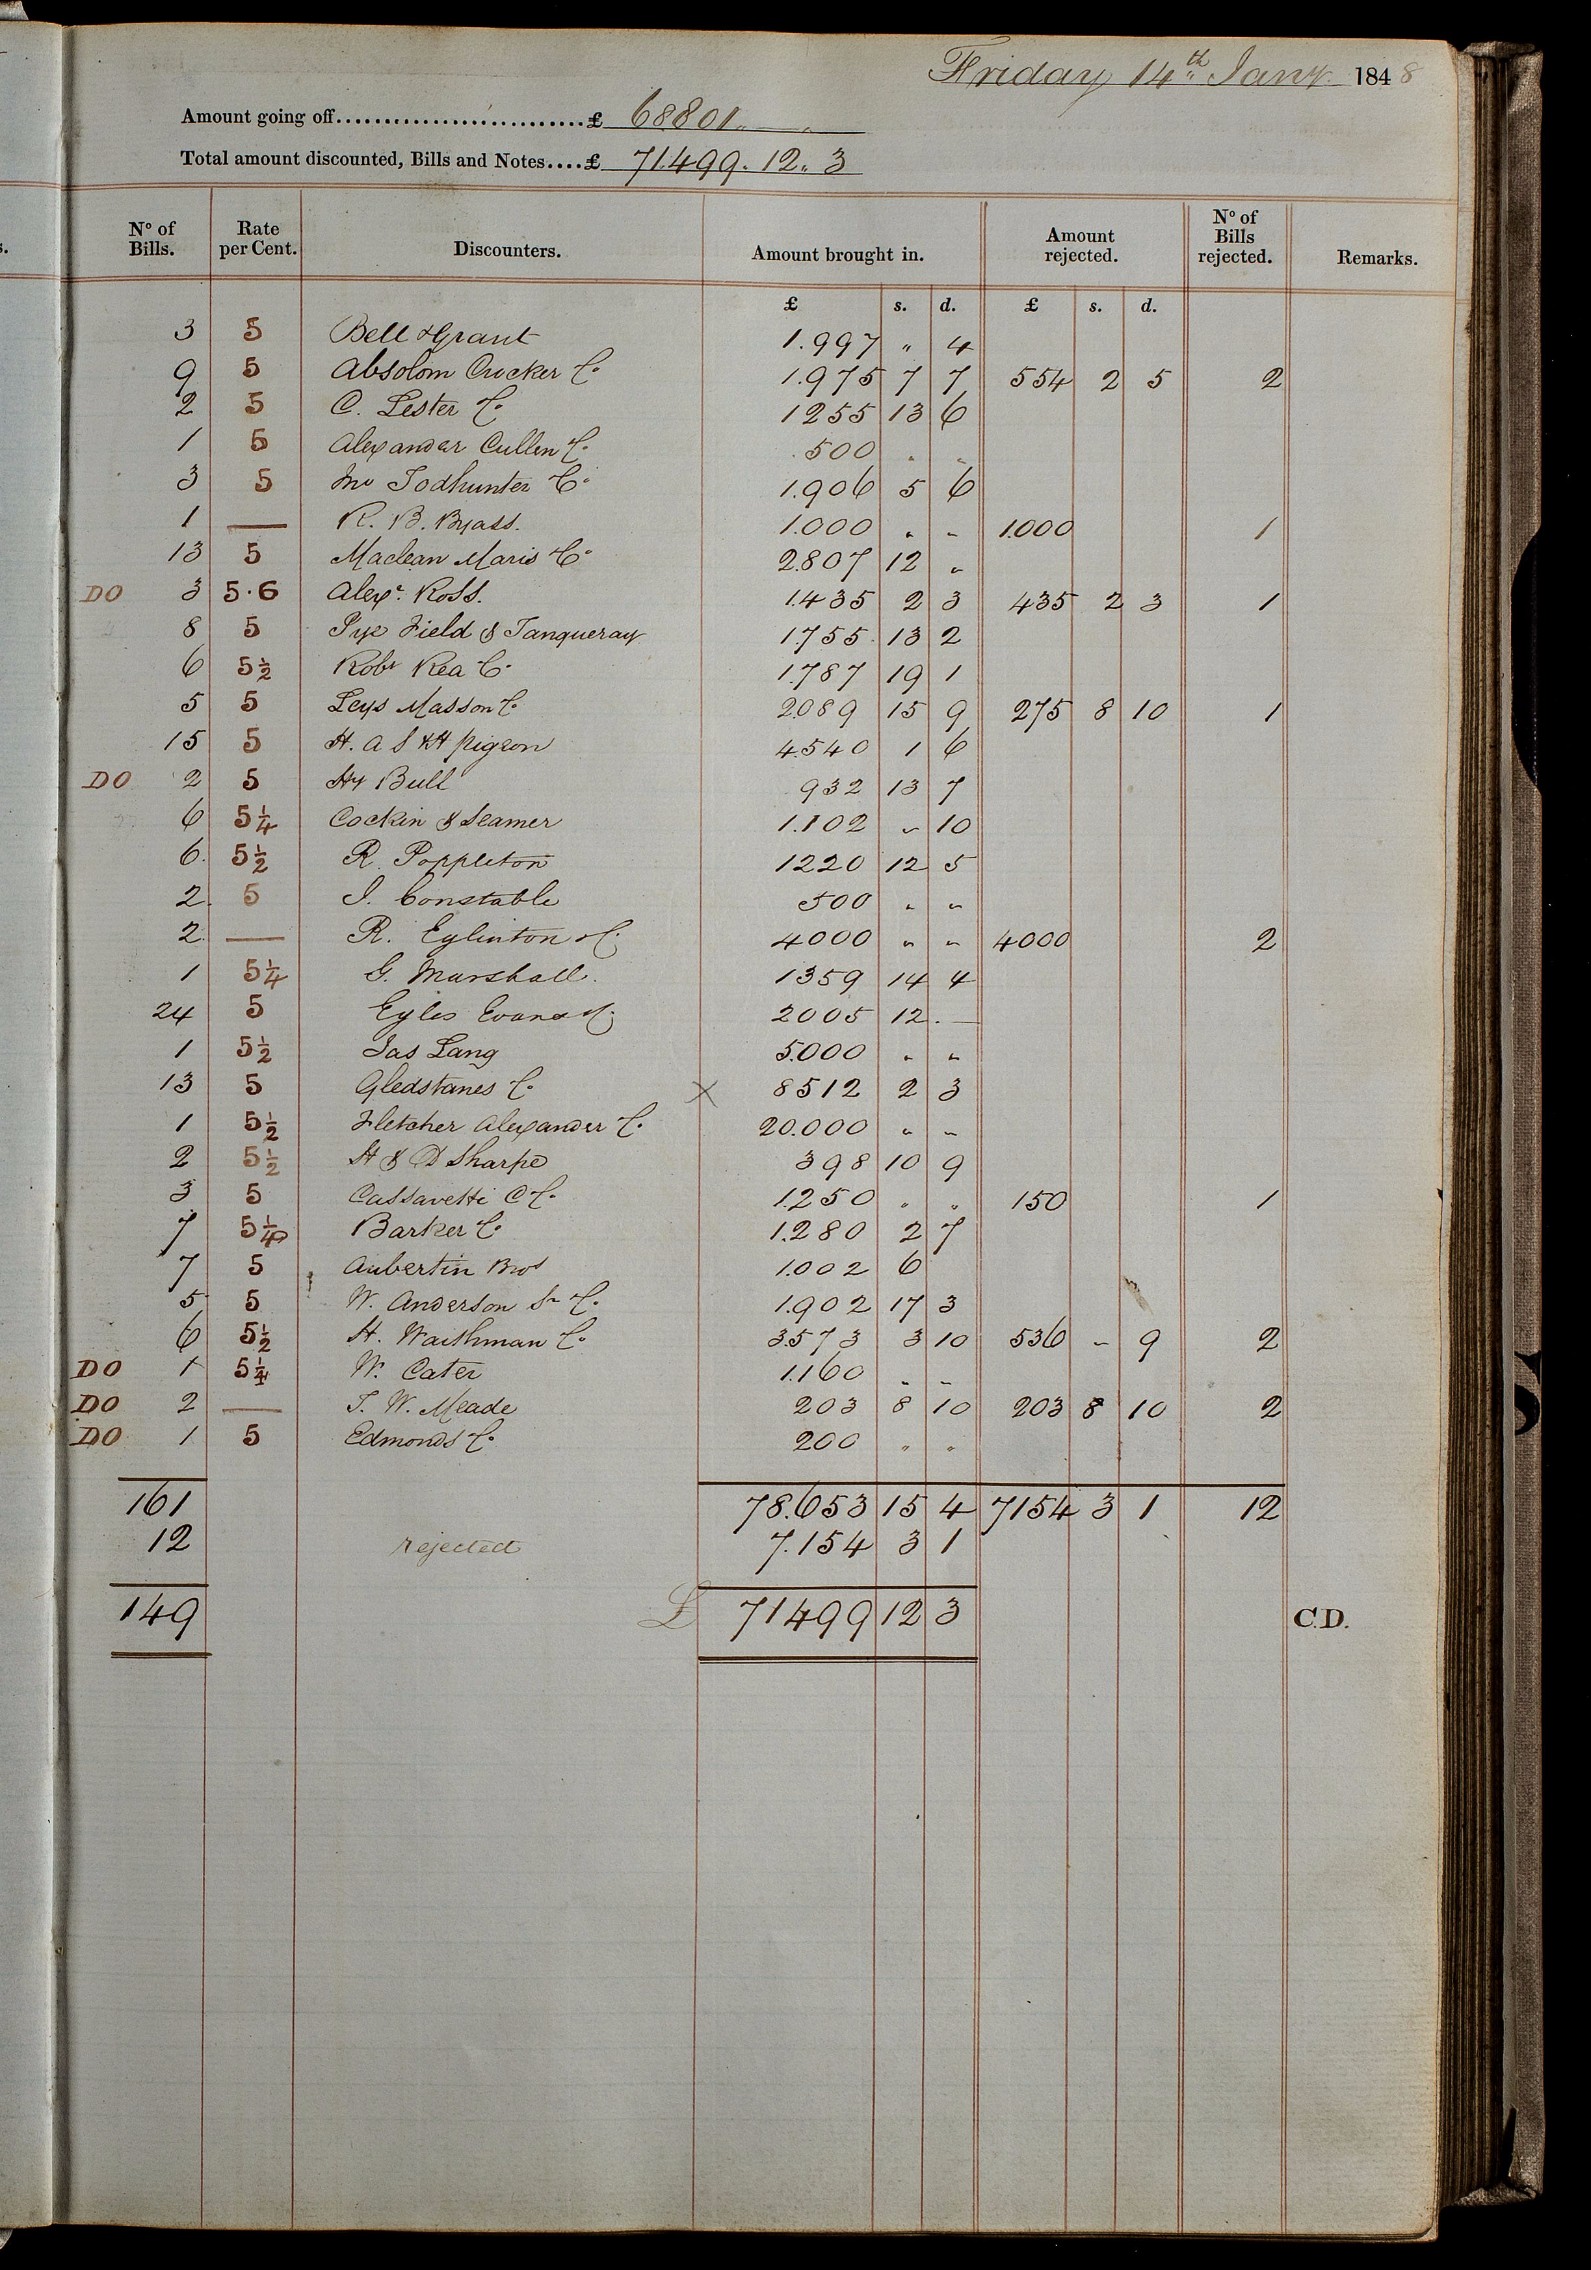 Friday 14th Jany 1848
Amount going off..........................£ 68801 „ — „
Total amount discounted, Bills and Notes....£ 71.499. 12 „ 3
No of Bills. Rate per Cent. Discounters. Amount brought in. Amount rejected. No of Bills rejected. Remarks.
£ s. d. £ s. d.
3 5 Bell & Grant 1.997 „ 4
9 5 Absolom Crocker Co 1.975 7 7 554 2 5 2
2 5 C. Lester Co 1255 13 6
1 5 Alexander Cullen Co 500 „ „
3 5 Jno Todhunter Co 1.906 5 6
1 — R. B. Byass. 1.000 „ „ 1.000 1
13 5 Maclean Maris Co 2.807 12 „
DO 3 5.6 Alexr. Ross. 1.435 2 3 435 2 3 1
8 5 Pye Field & Tanqueray 1.755 13 2
6 5½ Robt Rea Co 1.787 19 1
5 5 Leys Masson Co 2089 15 9 275 8 10 1
15 5 H. A S & H Pigeon 4.540 1 6
DO 2 5 Hy Bull 932 13 7
6 5¼ Cockin & Seamer 1.102 „ 10
6. 5½ R. Poppleton 1220 12 5
2. 5 J. Constable 500 „ „
2. — R. Eglinton & Co 4000 „ „ 4000 2
1 5¼ G. Marshall. 1359 14 4
24 5 Eyles Evans & Co 2005 12 . —
1 5½ Jas Lang 5.000 „ „
13 5 Gledstanes Co x 8512 2 3
1 5½ Fletcher Alexander Co 20.000 „ „
2 5½ H & D Sharpe 398 10 9
3 5 Cassavetti C Co 1.250 „ „ 150 1
7 5¼ Barker Co 1.280 2 7
7 5 Aubertin Bros 1.002 6
5 5 W. Anderson Sr Co 1.902 17 3
6 5½ H. Waithman Co 3.573 3 10 536 – 9 2
DO 1 5¼ W. Cater 1.160 „ „
DO 2 — T. W. Meade 203 8 10 203 8 10 2
DO 1 5 Edmonds Co 200 „ „
161 78.653 15 4 7154 3 1 12
12 rejected 7.154 3 1
149 £ 71499 12 3 C.D.